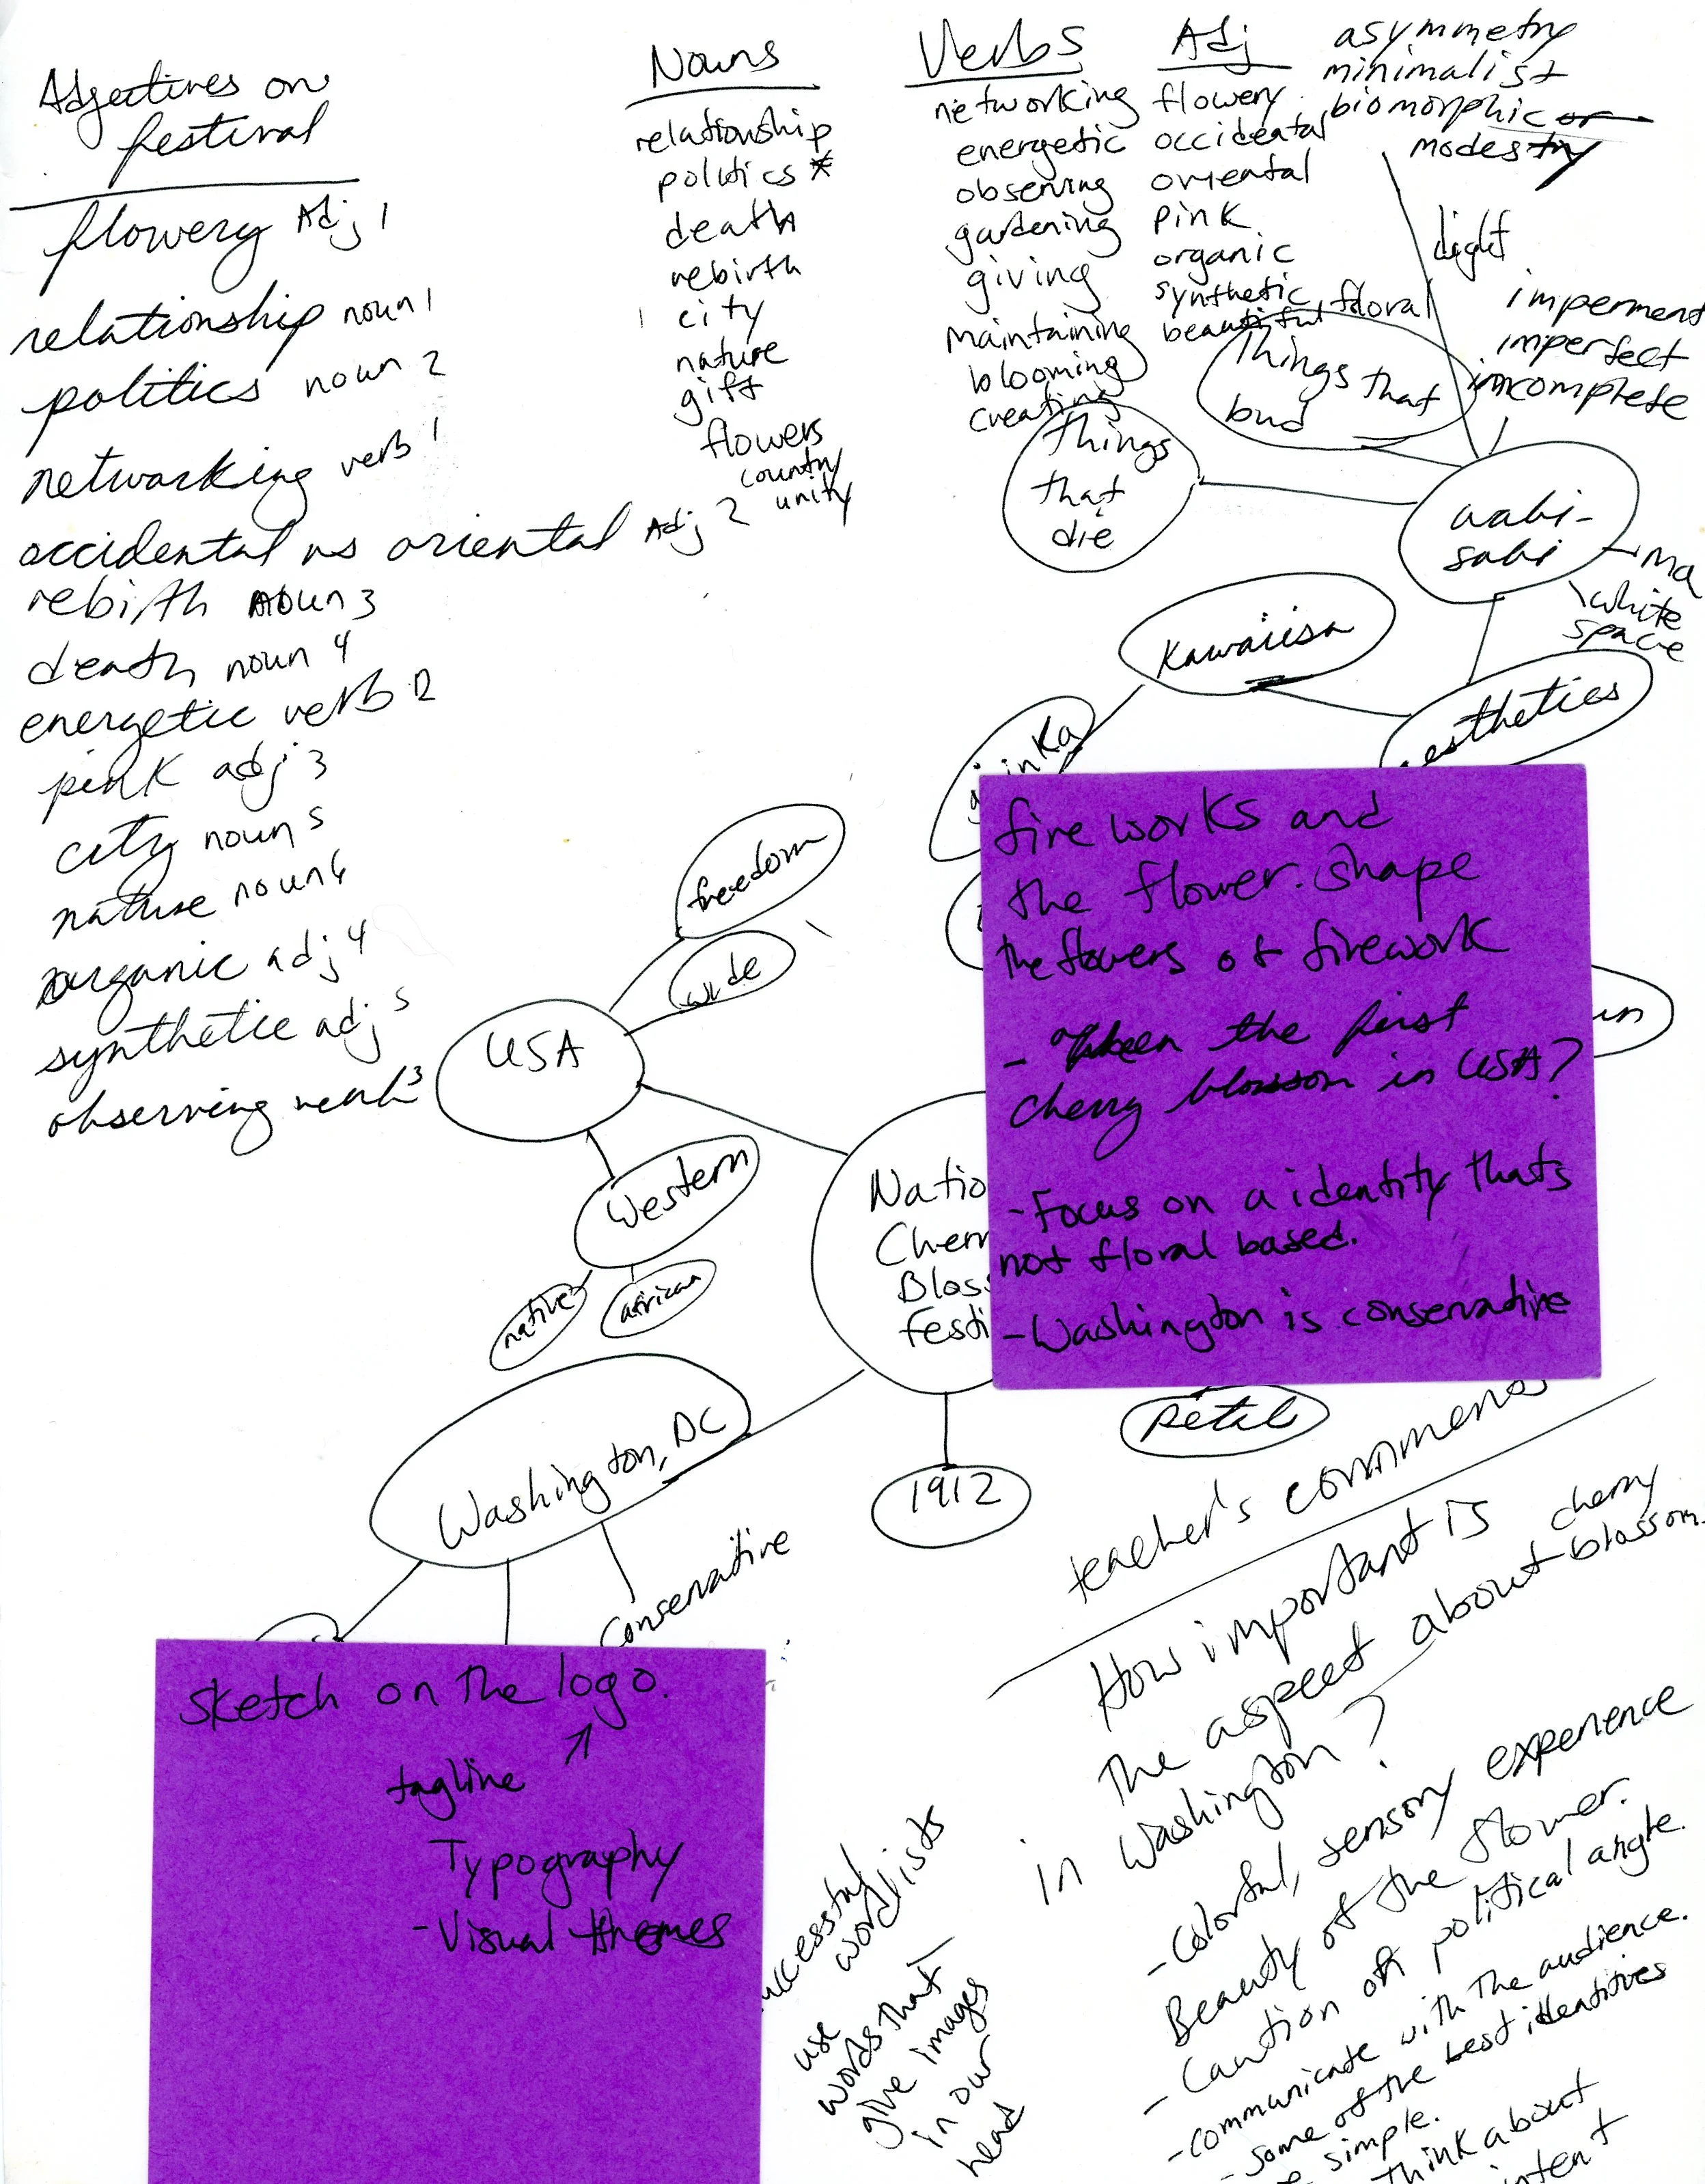 Adjectives on
festival
flowery Adj 1
relationship noun 1
politics noun 2
networking verb 1
occidental vs oriental Adj 2
rebirth noun 3
death noun 4
energetic verb 2
pink adj 3
city noun 5
nature noun 6
organic adj 4
synthetic adj 5
observing verb 3
Nouns
relationship
politics *
death
rebirth
city
nature
gift
flowers
country
unity
Verbs
networking
energetic
observing
gardening
giving
maintaining
blooming
creating
Adj
flowery
occidental
oriental
pink
organic
synthetic
beautiful, floral
asymmetry
minimalist
biomorphic or
modestry
light
imperment
imperfect
incomplete
things that
bud
things
that
die
wabi-
sabi
ma
white
space
Kawaiisa
esthetics
inka
freedom
wide
USA
Western
native
african
Natio
Cherr
Blos
festi
1912
Washington, DC
conservative
petal
fireworks and
the flower. shape
the flowers of firework
- When the first
cherry blossom in USA?
- Focus on a identity thats
not floral based.
- Washington is conservative
sketch on the logo.
tagline
Typography
- Visual themes
word lists
use
words that
give images
in our
head
teacher's
How important is
the aspect about cherry blossom.
in Washington?
- Colorful, sensory experience
Beauty of the flower.
- Caution of political angle.
- communicate with the audience.
- some of the best identities
simple.
think about